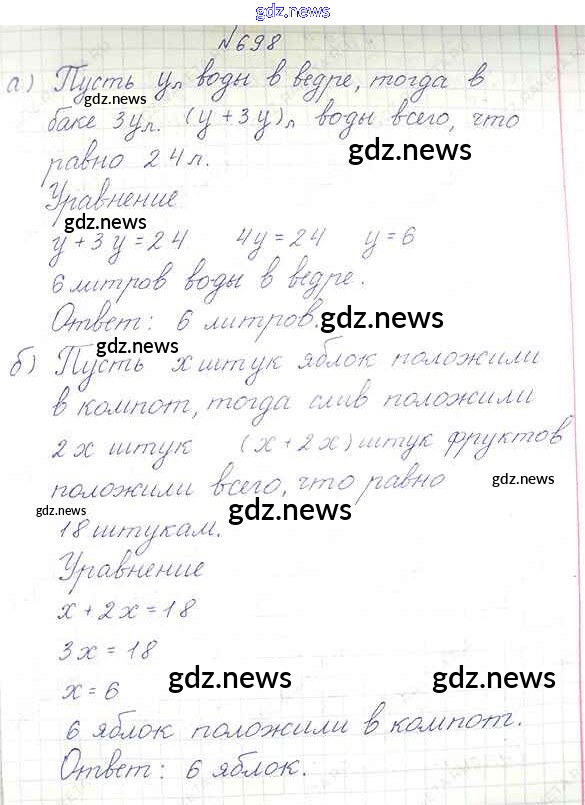 gdz.news
№698
а) Пусть y л воды в ведре, тогда в
gdz.news
баке 3y л. (y + 3y) л воды всего, что
gdz.news
равно 24 л.
Уравнение
gdz.news
y + 3y = 24 4y = 24 y = 6
6 литров воды в ведре.
Ответ: 6 литров.
gdz.news
gdz.news
б) Пусть x штук яблок положили
в компот, тогда слив положили
2x штук (x + 2x) штук фруктов
gdz.news
положили всего, что равно
gdz.news
gdz.news
18 штукам.
Уравнение
x + 2x = 18
3x = 18
gdz.news
gdz.news
x = 6
6 яблок положили в компот.
Ответ: 6 яблок.